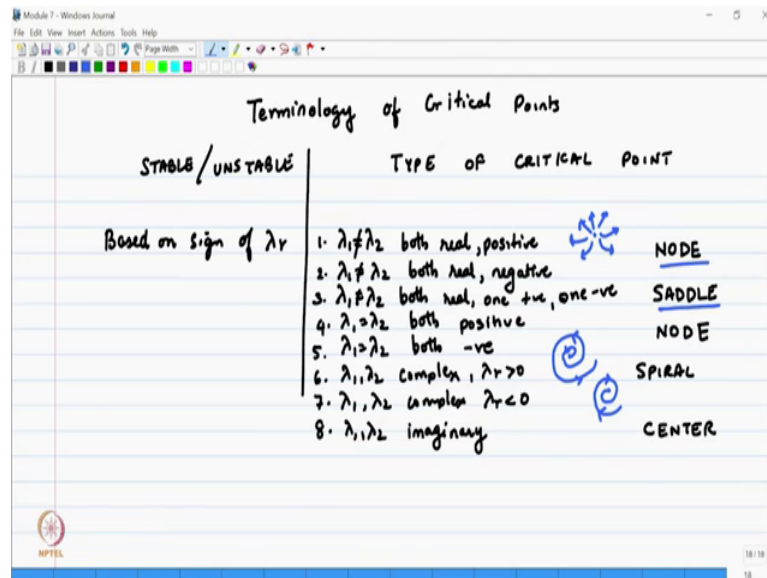 Module 7 - Windows Journal
File Edit View Insert Actions Tools Help
Page Width
B
Terminology of Critical Points
STABLE/UNSTABLE
TYPE OF CRITICAL POINT
Based on sign of λr
1. λ1≠λ2 both real, positive
NODE
2. λ1≠λ2 both real, negative
3. λ1≠λ2 both real, one +ve, one -ve
SADDLE
4. λ1=λ2 both positive
NODE
5. λ1=λ2 both -ve
6. λ1,λ2 complex, λr>0
SPIRAL
7. λ1,λ2 complex λr<0
8. λ1,λ2 imaginary
CENTER
NPTEL
18/18
18